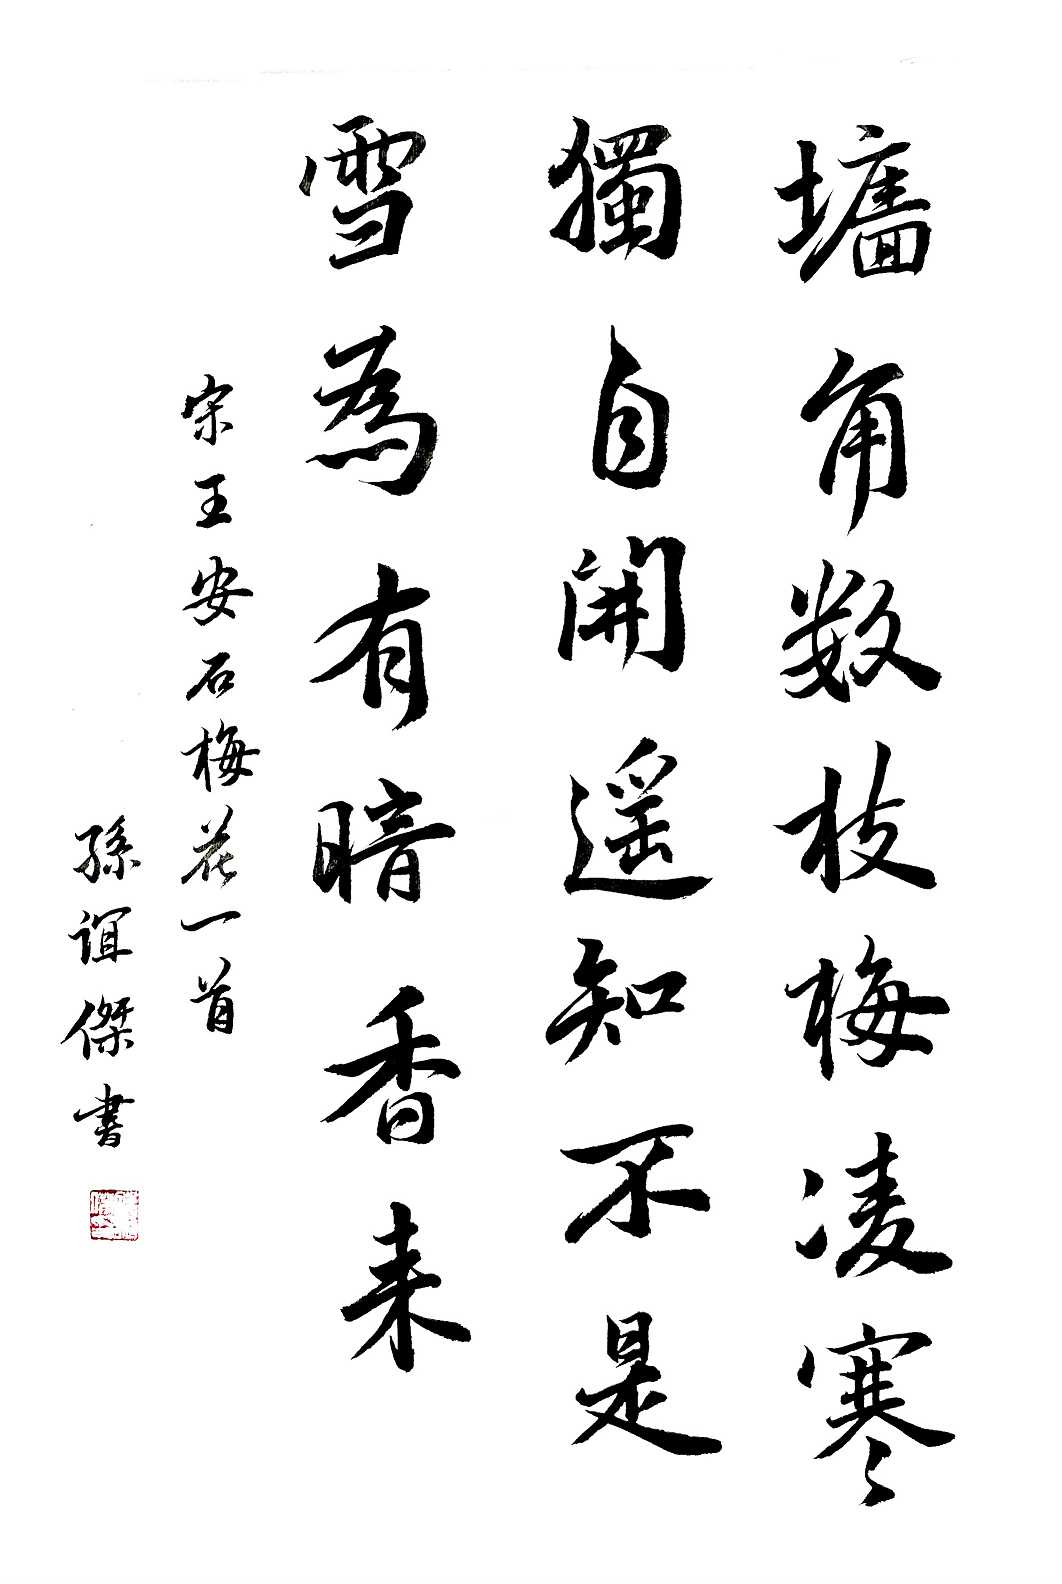 墻角数枝梅凌寒
獨自開遥知不是
雪為有暗香来
宋王安石梅花一首
孫誼傑書